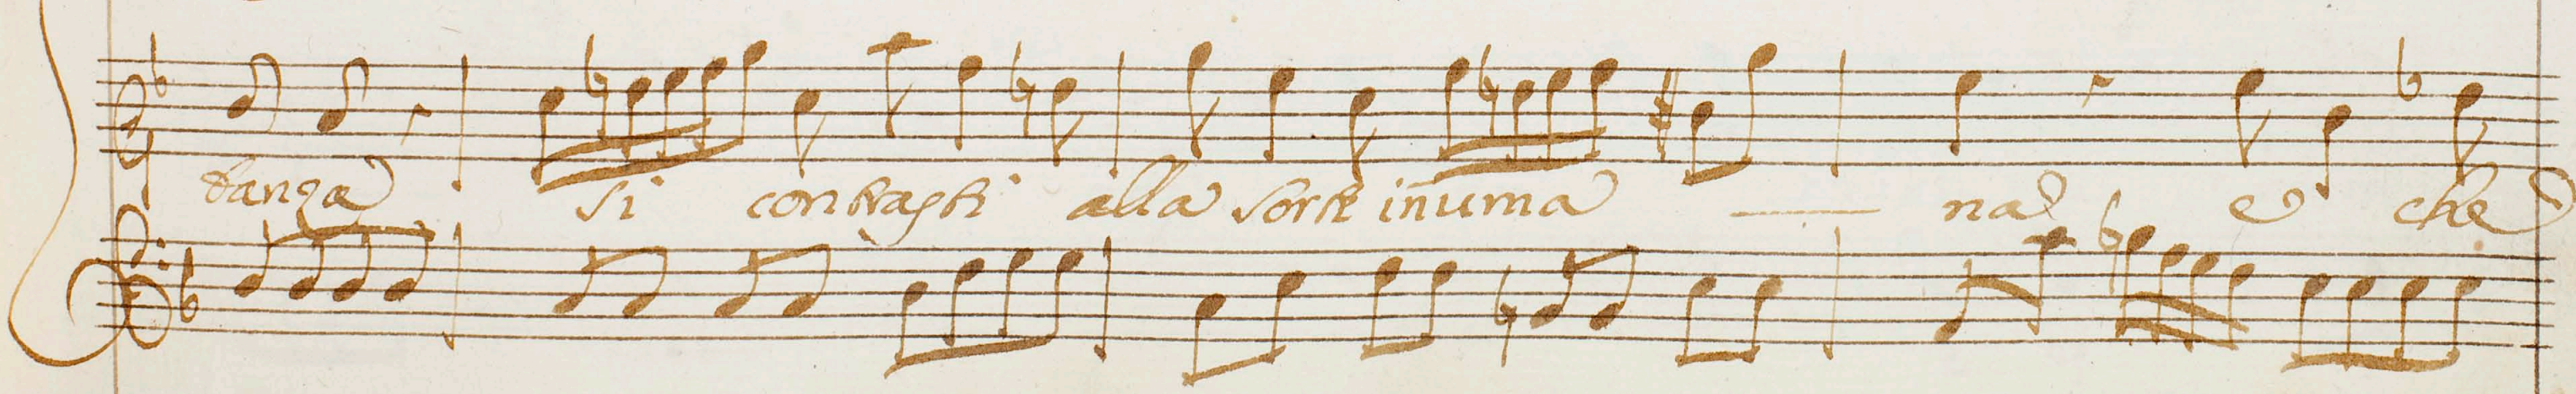 danza si contrasti alla sorte inuma — na e che